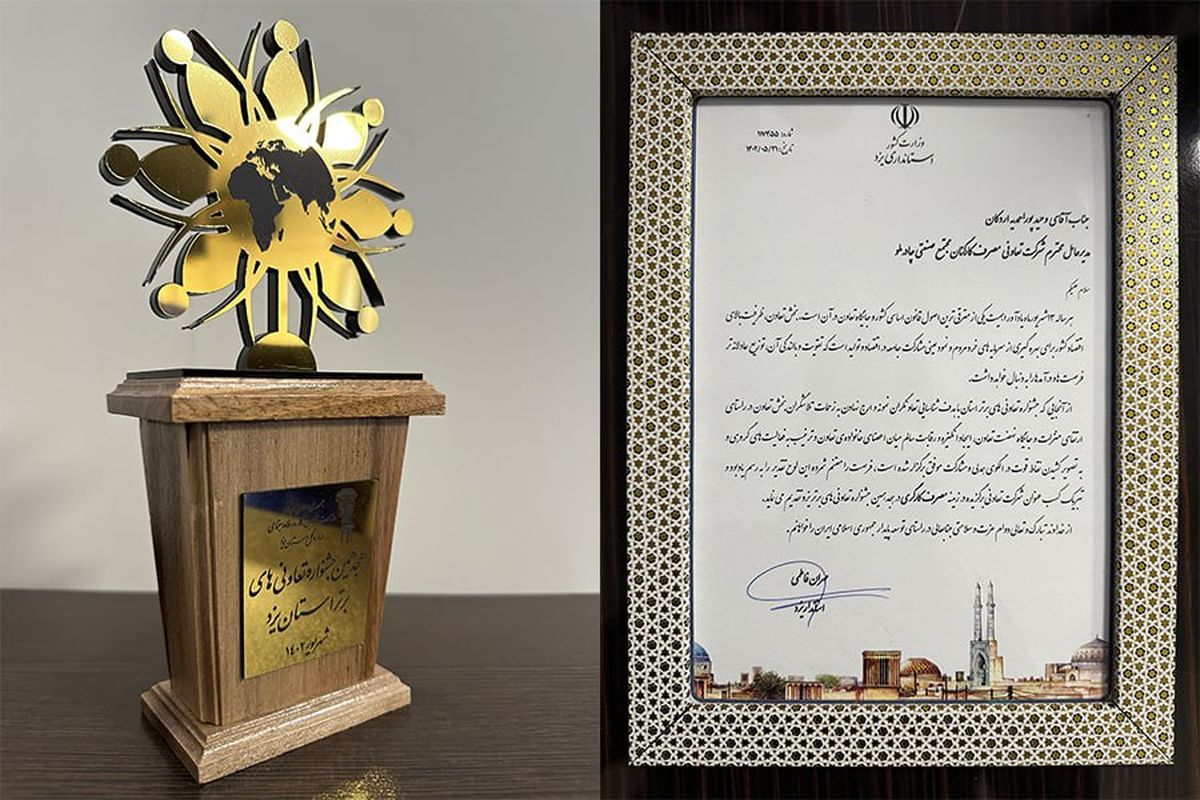 هجدهمین جشنواره تعاونی های
برتر استان یزد
شهریور ۱۴۰۲
وزارت کشور
استانداری یزد
شماره: ۹۷۴۵۵
تاریخ: ۱۴۰۲/۰۵/۳۱
جناب آقای وحید پوراحمدیه اردکان
مدیرعامل محترم شرکت تعاونی مصرف کارکنان مجتمع صنعتی چادرملو
سلام علیکم
هر ساله ۱۳ شهریور ماه یادآور اهمیت یکی از مترقی ترین اصول قانون اساسی کشور و جایگاه تعاون در آن است. بخش تعاون، ظرفیت بالای
اقتصاد کشور برای بهره گیری از سرمایه های خرد مردم و نمود عینی مشارکت جامعه در اقتصاد و تولید است که تقویت و بالندگی آن، توزیع عادلانه تر
فرصت ها و درآمدها را به دنبال خواهد داشت.
از آنجایی که جشنواره تعاونی های برتر استان با هدف شناسایی تعاونگران نمونه و ارج نهادن به زحمات تلاشگران بخش تعاون در راستای
ارتقای منزلت و جایگاه نهضت تعاون، ایجاد انگیزه و رقابت سالم میان اعضای خانواده ی تعاون و ترغیب به فعالیت های گروهی و
به تصویر کشیدن نقاط قوت در الگوی همدلی و مشارکت موفق برگزار شده است، فرصت را مغتنم شمرده این لوح تقدیر را به رسم یادبود و
تبریک کسب عنوان شرکت تعاونی برگزیده در زمینه مصرف کارگری در هجدهمین جشنواره تعاونی های برتر یزد تقدیم می نماید.
از خداوند تبارک و تعالی دوام عزت و سلامتی جنابعالی در راستای توسعه پایدار جمهوری اسلامی ایران را خواهانم.
مهران فاطمی
استاندار یزد